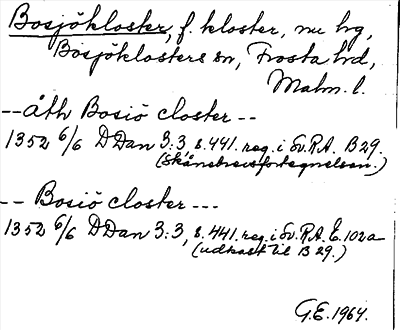 Bosjökloster, f. kloster, nu hg,
Bosjöklosters sn, Frosta hd,
Malm. l.
-- åth Bosiö closter --
1352 6/6 DDan 3:3, s. 441. reg. i Sv.R.A. B29.
(Skånebrevsfortegnelsen.)
-- Bosiö closter ---
1352 6/6 DDan 3:3, s. 441. reg. i Sv.R.A. E.102a
(udkast til B29.)
G.E. 1964.